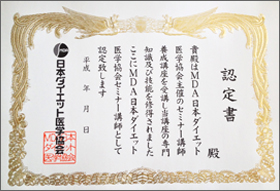 認定書
殿
貴殿はMDA日本ダイエット
医学協会主催のセミナー講師
養成講座を受講し当講座の専門
知識及び技能を修得されました
ここにMDA日本ダイエット
医学協会セミナー講師として
認定致します
平成 年 月 日
日本ダイエット医学協会